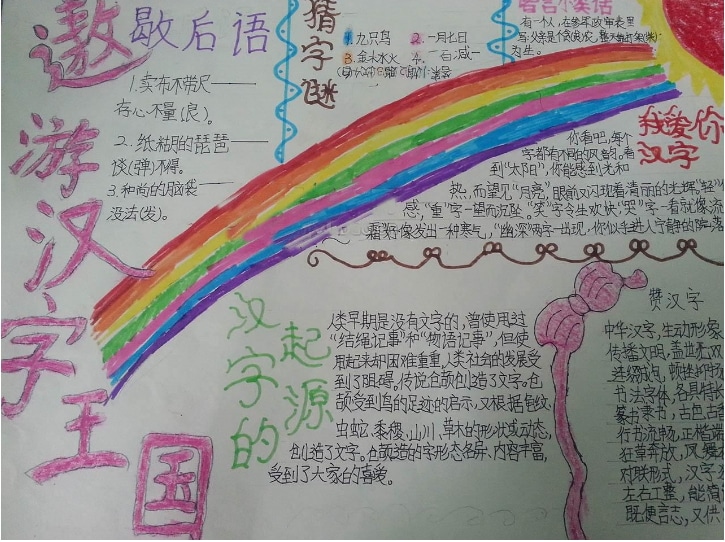 遨游汉字王国
歇后语
1.卖布不带尺——
存心不量(良)。
2.纸糊的琵琶——
谈(弹)不得。
3.和尚的脑袋——
没法(发)。
猜字谜
1.九只鸟 2.一月七日
3.金木水火 4.一百减一
有一人,在
我爱你
汉字
你看吧,每个
字都有不同的风韵。看
到“太阳”,你能感到光和
热,而望见“月亮”,眼前又闪现着清丽的光辉。“轻”
感,“重”字一望而沉坠。“笑”字令生欢快,“哭”字一看就像流
霜好像发出一种寒气,“幽深”两字一出现,你似
汉字的
起源
人类早期是没有文字的,曾使用过
“结绳记事”和“物语记事”,但使
用起来却困难重重,人类社会的发展受
到了阻碍。传说仓颉创造了文字。仓
颉受到鸟的足迹的启示,又根据龟纹、
虫蛇、黍稷、山川、草木的形状或动态,
创造了文字。仓颉造的字形态各异、内容丰富,
受到了大家的喜爱。
赞汉字
中华汉字,生动形象
传播文明,盖世无双
书法字体,各具特
篆书隶书,古色古
行书流畅,正楷端
狂草奔放,凤舞
对联形式,汉字
左右工整,能简
既便言志,又供